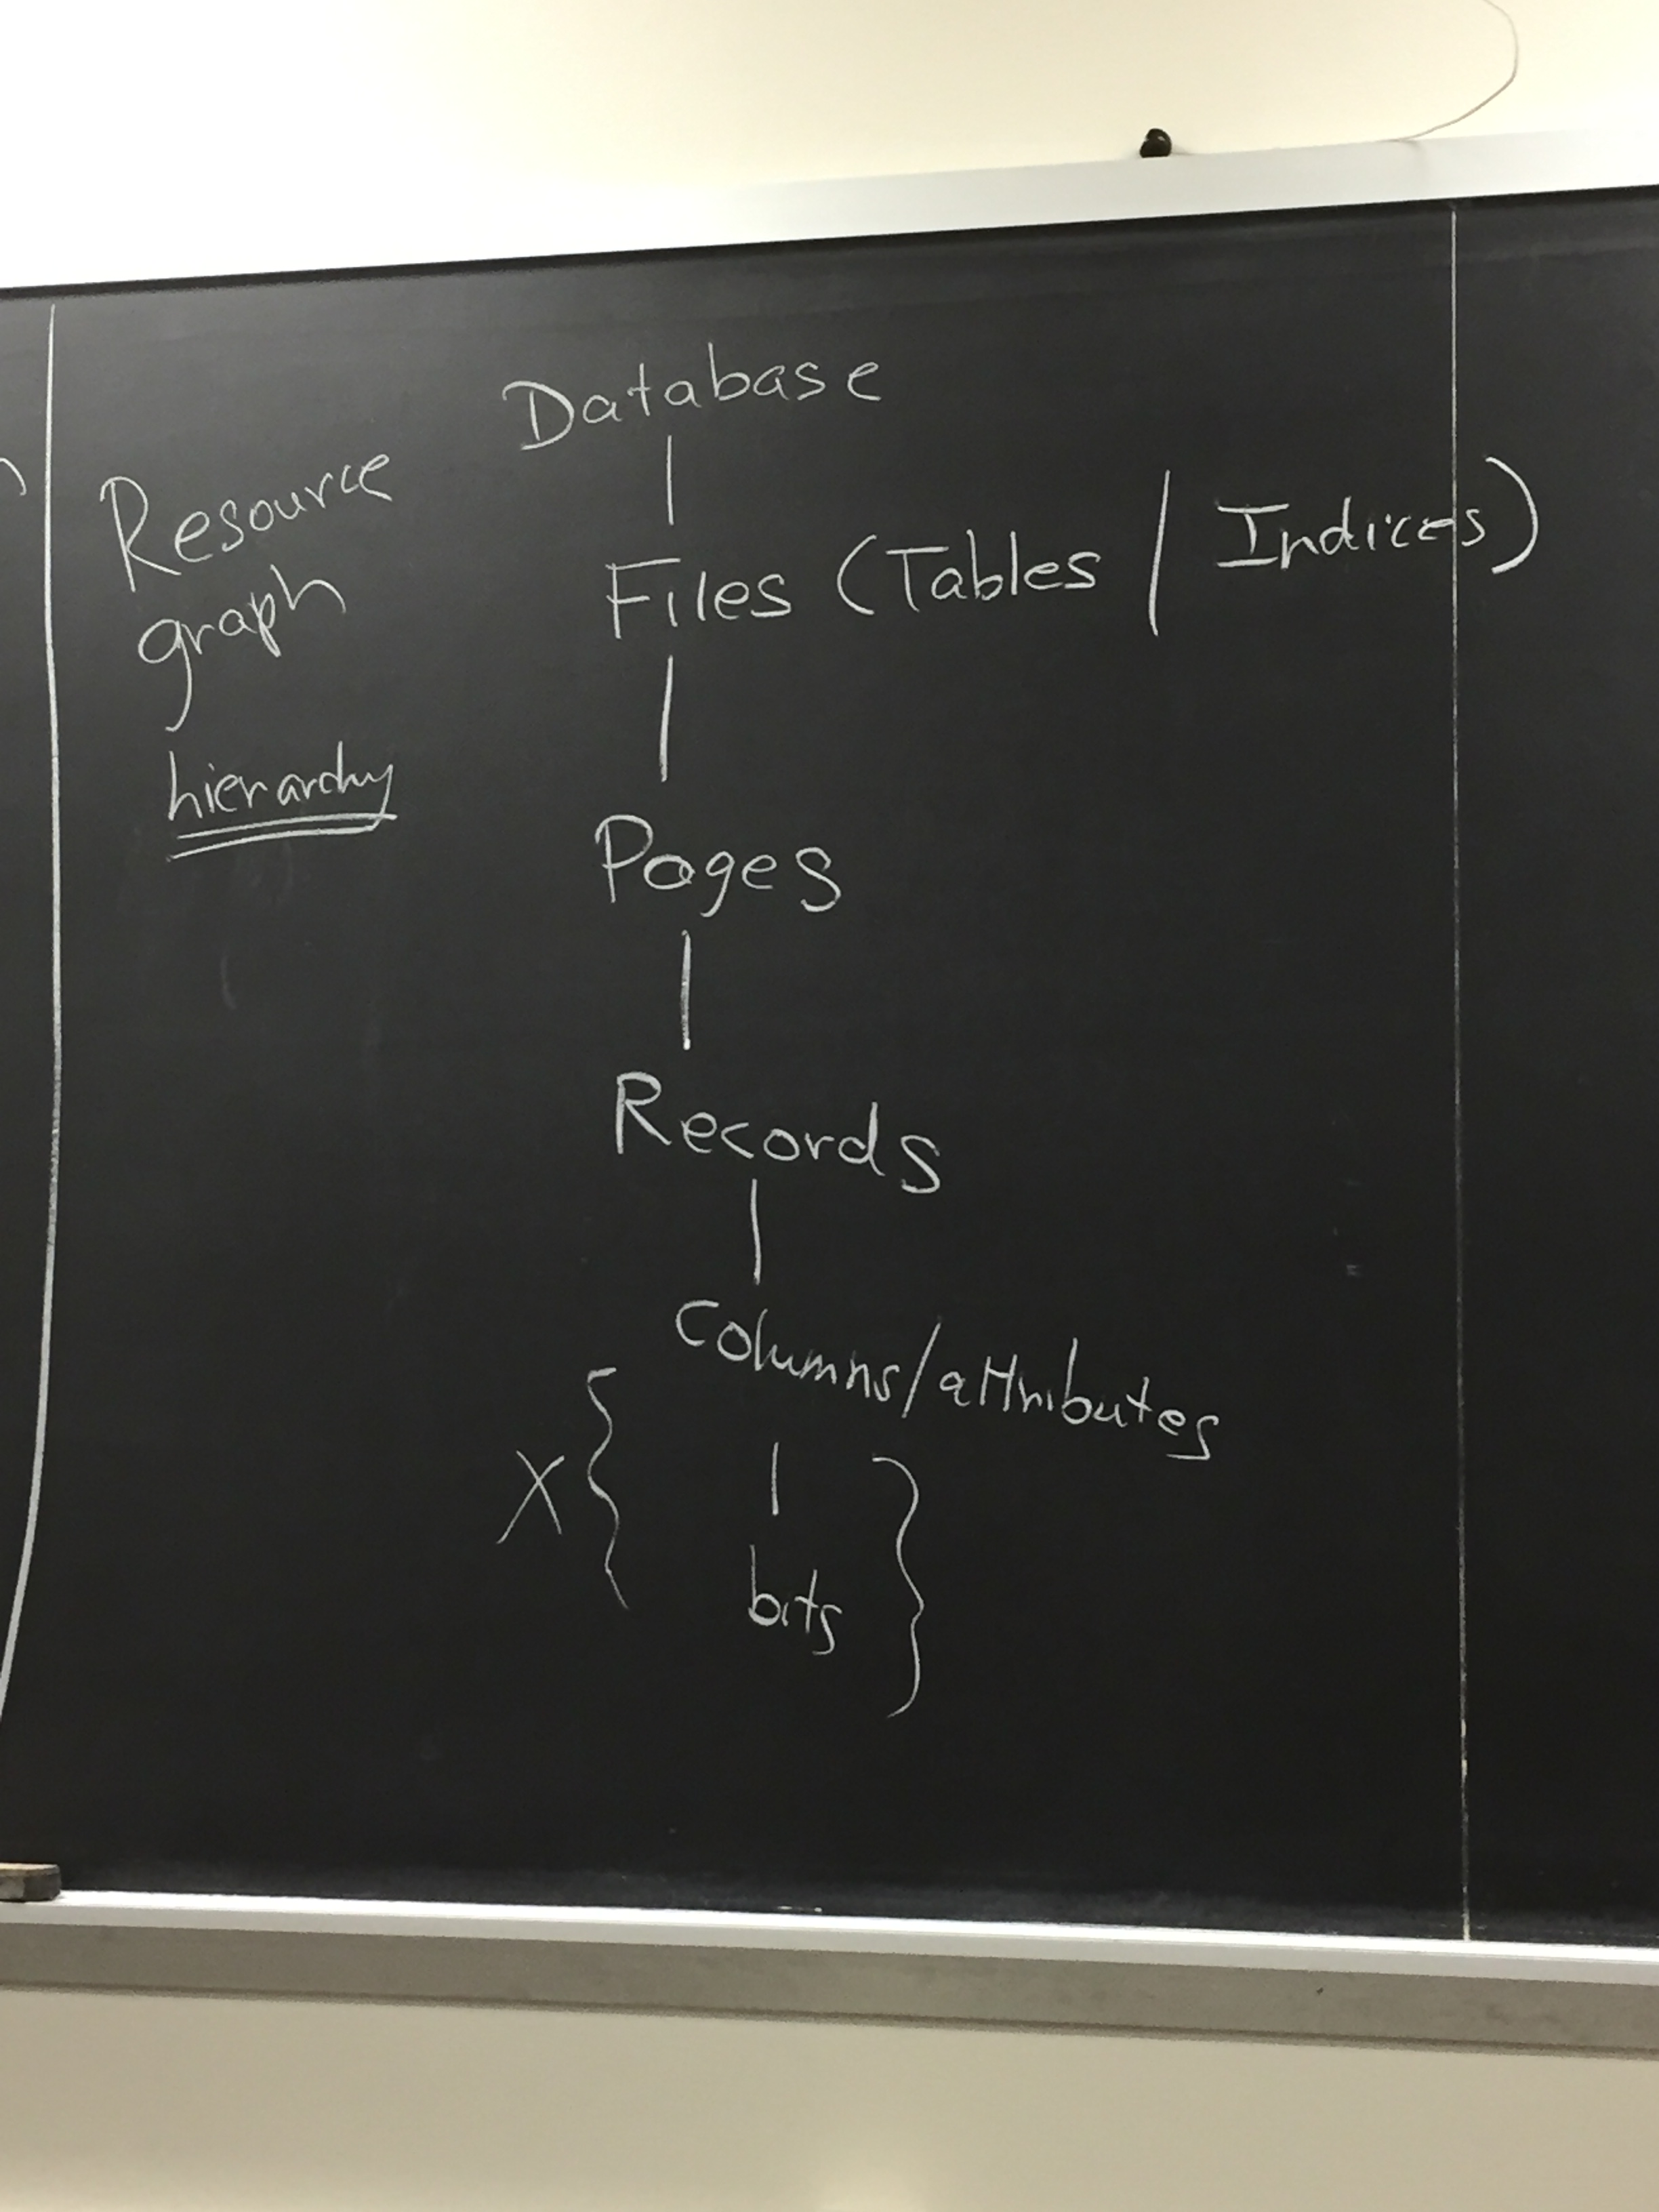 Database
Resource
graph
hierarchy
Files (Tables | Indices)
Pages
Records
Columns/attributes
X {
bits }